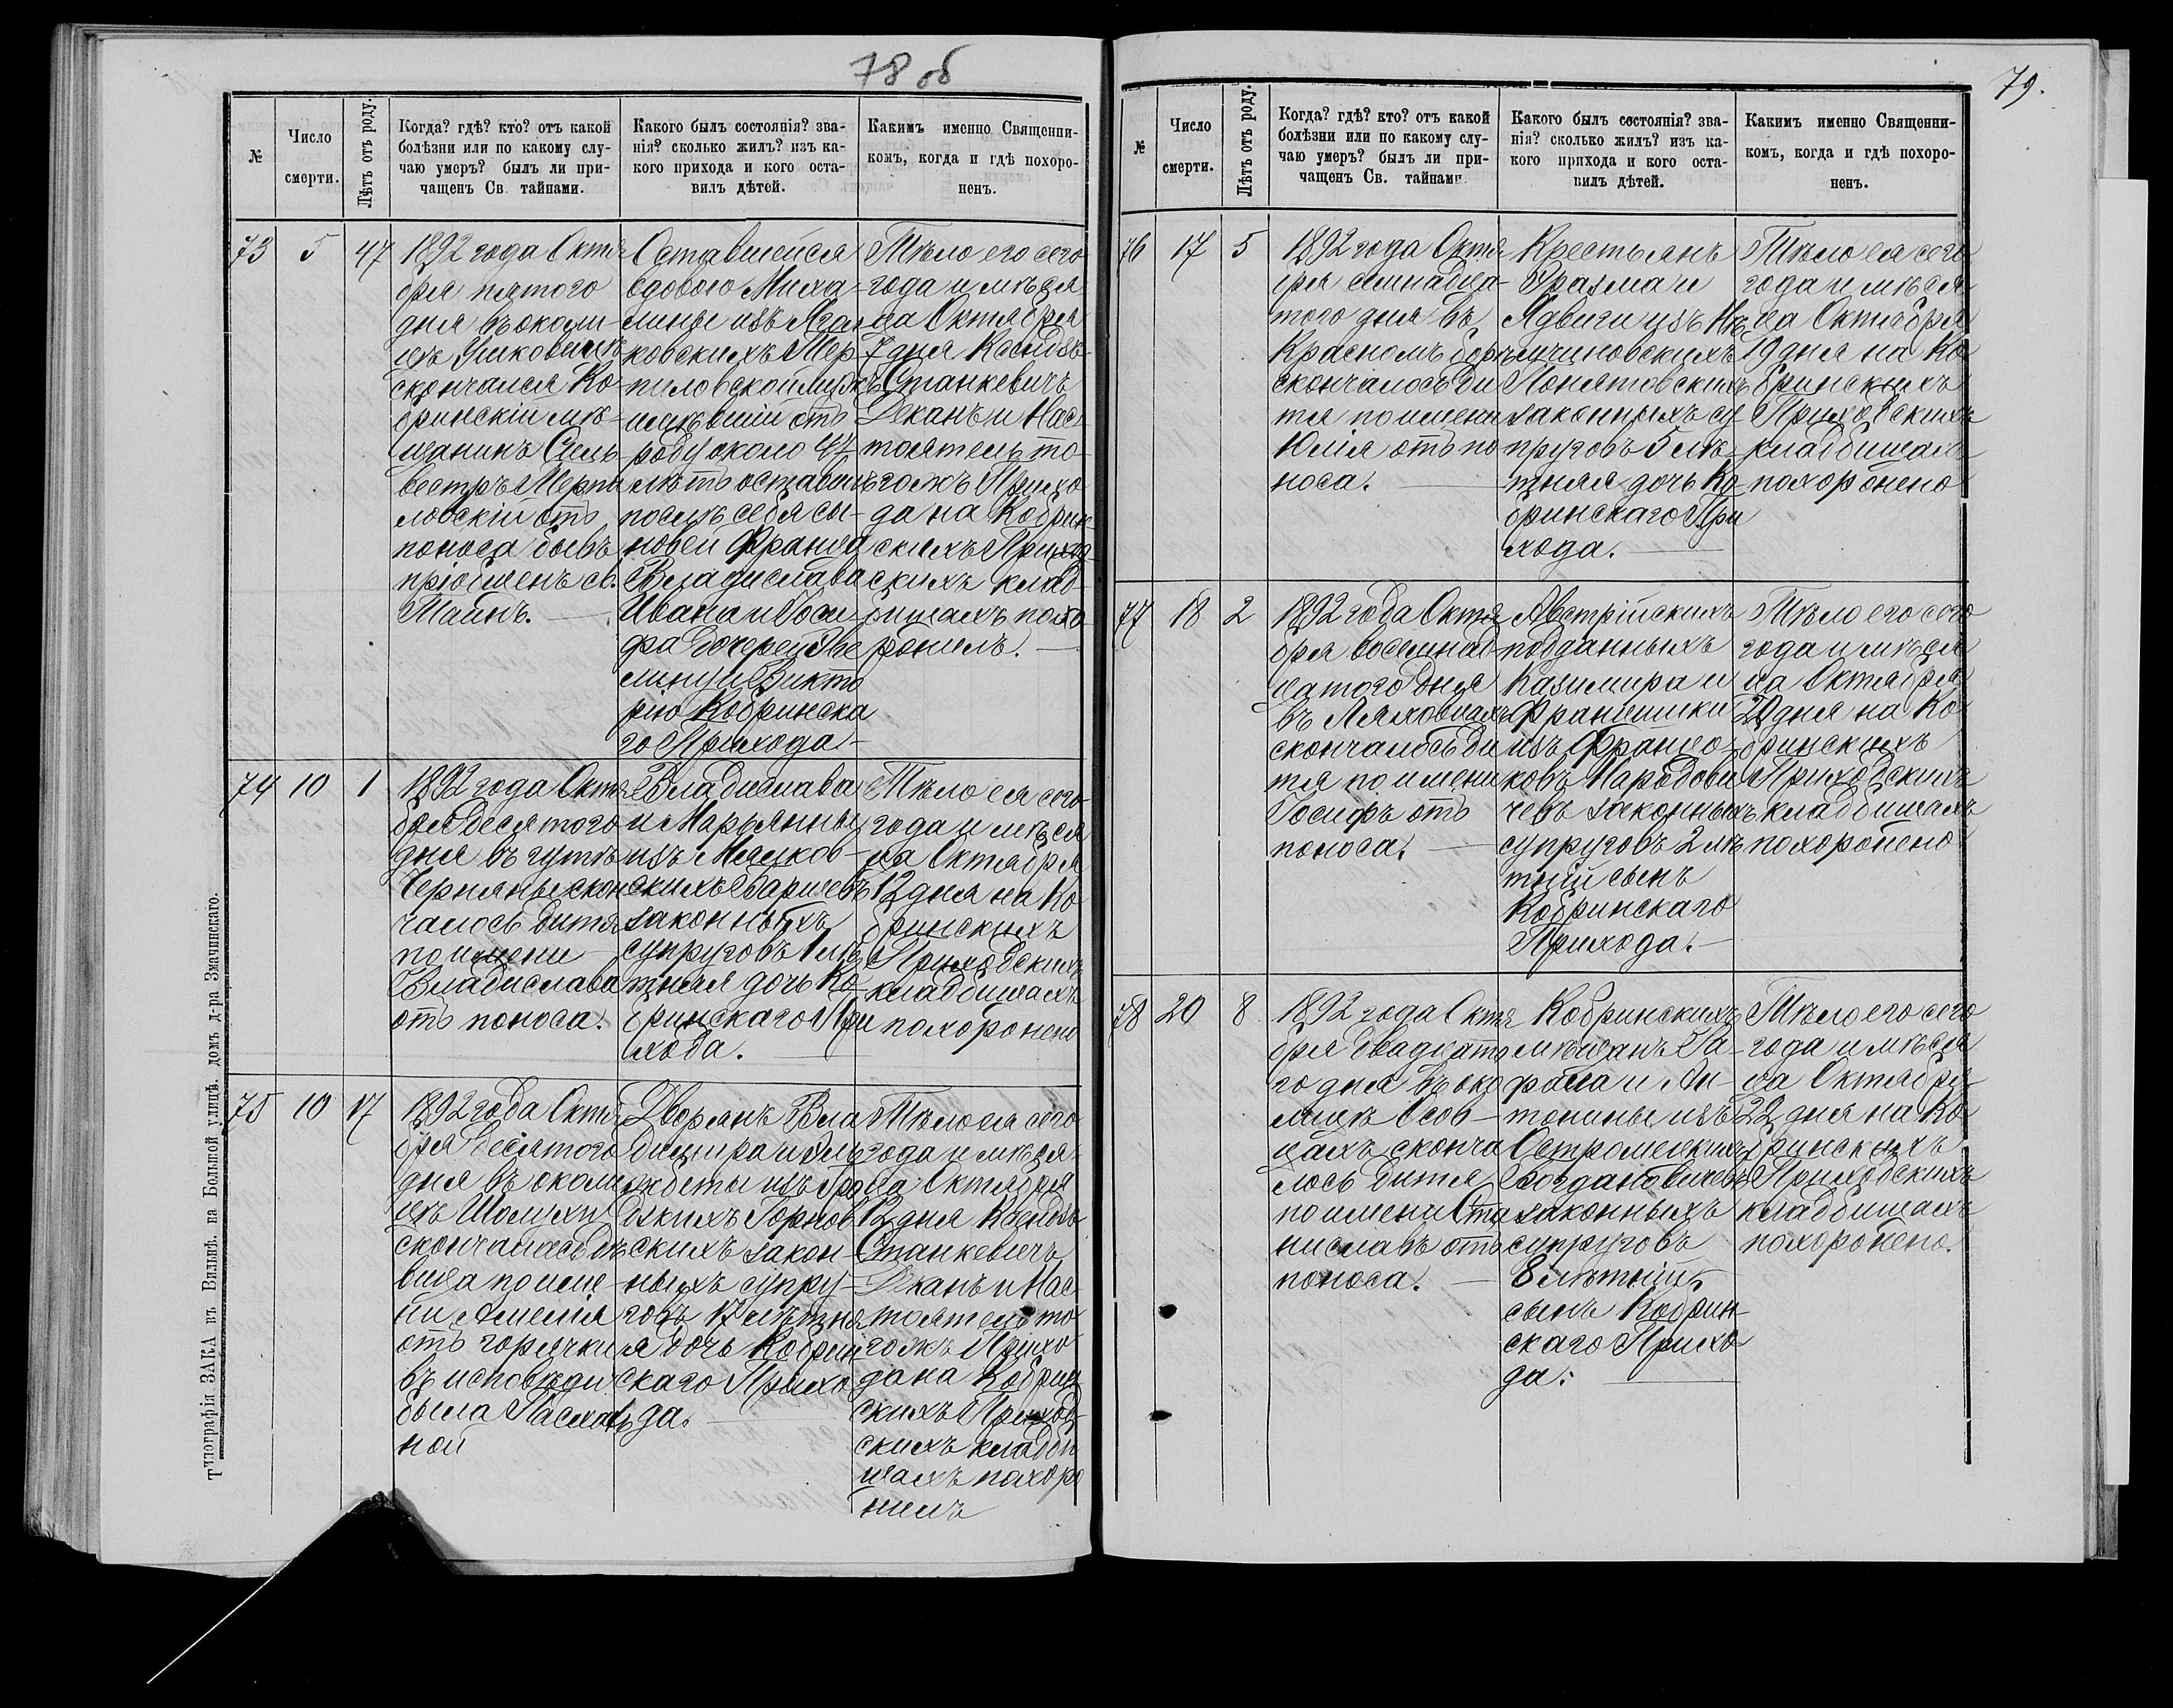 78 об
№
Число
смерти.
Лѣтъ отъ роду.
Когда? гдѣ? кто? отъ какой
болѣзни или по какому слу-
чаю умеръ? былъ ли при-
чащенъ Св. тайнами.
Какого былъ состоянія? зва-
нія? сколько жилъ? изъ ка-
кого прихода и кого оста-
вилъ дѣтей.
Какимъ именно Священни-
комъ, когда и гдѣ похоро-
ненъ.
73
5
47
1892 года Октя
бря пятого
дня въ околи-
цѣ
скончался Ко-
бринскій мѣ-
щанинъ Силь
вестръ Терпи
ловскій отъ
поноса бывъ
пріобщенъ св.
Тайнъ.
Оставшейся
вдовою Миха-
лины изъ
ковскихъ Тер-
пиловской
имѣвшій отъ
роду около 47
лѣтъ оставилъ
послѣ себя сы-
новей Франца
Владислава
Ивана и Іоси-
фа дочерей Эве
лину и Викто
рію Кобринска
го Прихода
Тѣло его сего
года и мѣся-
ца Октября
7 дня Ксендзъ
Станкевичъ
Деканъ и Нас
тоятель то
гожъ Прихо
да на Кобрин-
скихъ Приход-
скихъ клад-
бищахъ похо
ронилъ.
74
10
1
1892 года Октя
бря десятого
дня въ гутѣ
Черняны скон
чалось дитя
по имени
Владислава
отъ поноса.
Владислава
и Марьянны
изъ Мацков-
скихъ
законныхъ
супруговъ 1 лѣ
тняя дочь Ко-
бринскаго При
хода.
Тѣло ея сего
года и мѣся
ца Октября
12 дня на Ко
бринскихъ
Приходскихъ
кладбищахъ
похоронено
75
10
17
1892 года Октя
бря десятого
дня въ околи
цѣ Шолухи
скончалась дѣ
вица по име
ни Амелія
отъ горячки
въ исповѣди
была Пасхаль
ной
Дворянъ Вла
диміра и Эли
жбеты изъ Гро
дзкихъ Горнов
скихъ закон-
ныхъ супру-
говъ 17 лѣтня
я дочь Кобрин
скаго Прихо
да.
Тѣло ея сего
года и мѣся-
ца Октября
12 дня Ксендзъ
Станкевичъ
Деканъ и Нас-
тоятель то
гожъ Прихо
да на Кобрин
скихъ Приход-
скихъ кладби
щахъ похоро
нилъ
Типографія ЗАКА въ Вильнѣ. на Большой улицѣ. домъ д-ра Змачинскаго.
79.
№
Число
смерти.
Лѣтъ отъ роду.
Когда? гдѣ? кто? отъ какой
болѣзни или по какому слу-
чаю умеръ? былъ ли при-
чащенъ Св. тайнами.
Какого былъ состоянія? зва-
нія? сколько жилъ? изъ ка-
кого прихода и кого оста-
вилъ дѣтей.
Какимъ именно Священни-
комъ, когда и гдѣ похоро-
ненъ.
76
17
5
1892 года Октя
бря семнадца
того дня въ
Красномъ борѣ
скончалось ди
тя по имени
Юлія отъ по
носа.
Крестьянъ
Эразма и
Ядвиги изъ
Понятовскихъ
законныхъ су
пруговъ 5 лѣ-
тняя дочь Ко
бринскаго При
хода.
Тѣло ея сего
года и мѣся-
ца Октября
19 дня на Ко
бринскихъ
Приходскихъ
кладбищахъ
похоронено
77
18
2
1892 года Октя
бря восемнад
цатого дня
въ Ляховцахъ
скончалось ди
тя по имени
Іосифъ отъ
поноса.
Австрійскихъ
подданныхъ
Казимира и
Францишки
изъ Францо-
ковъ Народови
чевъ законныхъ
супруговъ 2 лѣ
тній сынъ
Кобринскаго
Прихода.
Тѣло его сего
года и мѣся
ца Октября
20 дня на Ко
бринскихъ
Приходскихъ
кладбищахъ
похоронено
78
20
8
1892 года Октя
бря двадцато
го дня въ око
лицѣ Осов-
цахъ сконча
лось дитя
по имени Ста
ниславъ отъ
поноса.
Кобринскихъ
мѣщанъ Ра-
фала и Ан-
тонины изъ
Остромецкихъ
Богдановичевъ
законныхъ
супруговъ
8 лѣтній
сынъ Кобрин-
скаго Прихо
да.
Тѣло его сего
года и мѣся
ца Октября
22 дня на Ко
бринскихъ
Приходскихъ
кладбищахъ
похоронено.